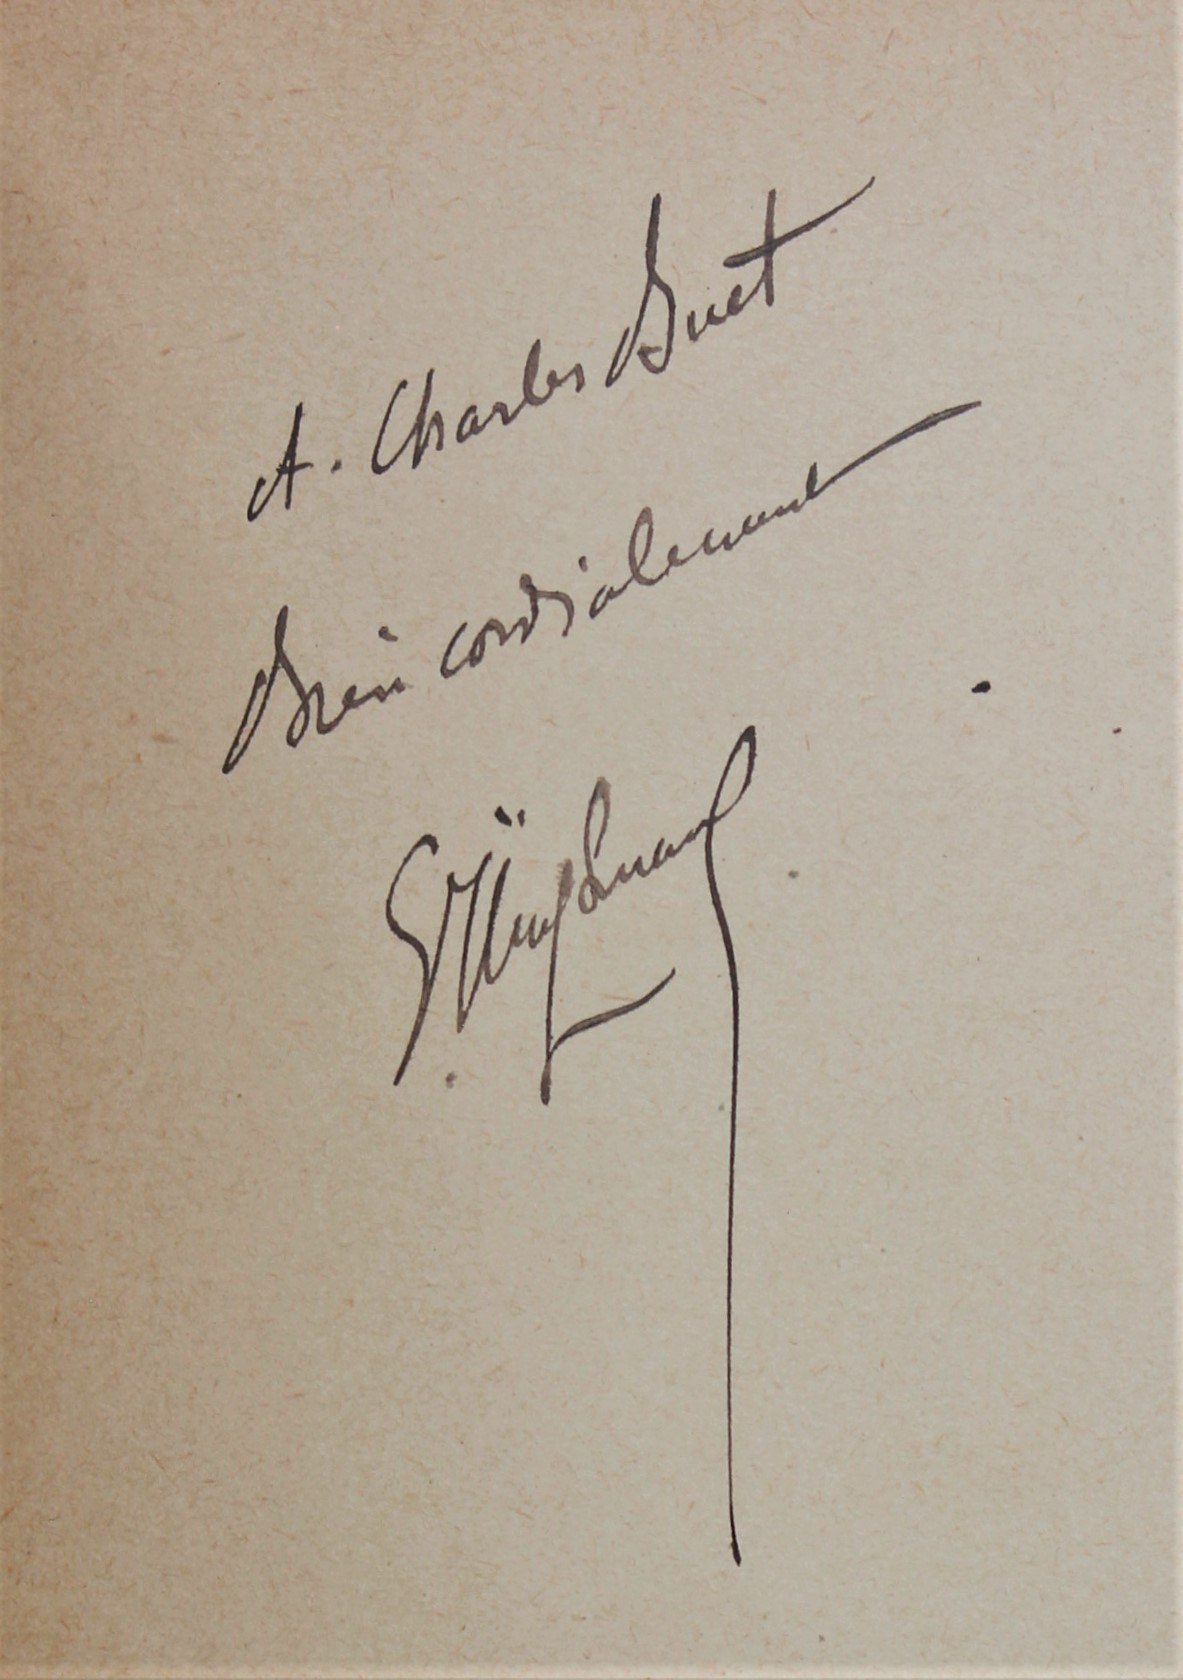 A. Charles Buet
Bien cordialement
G Huysmans